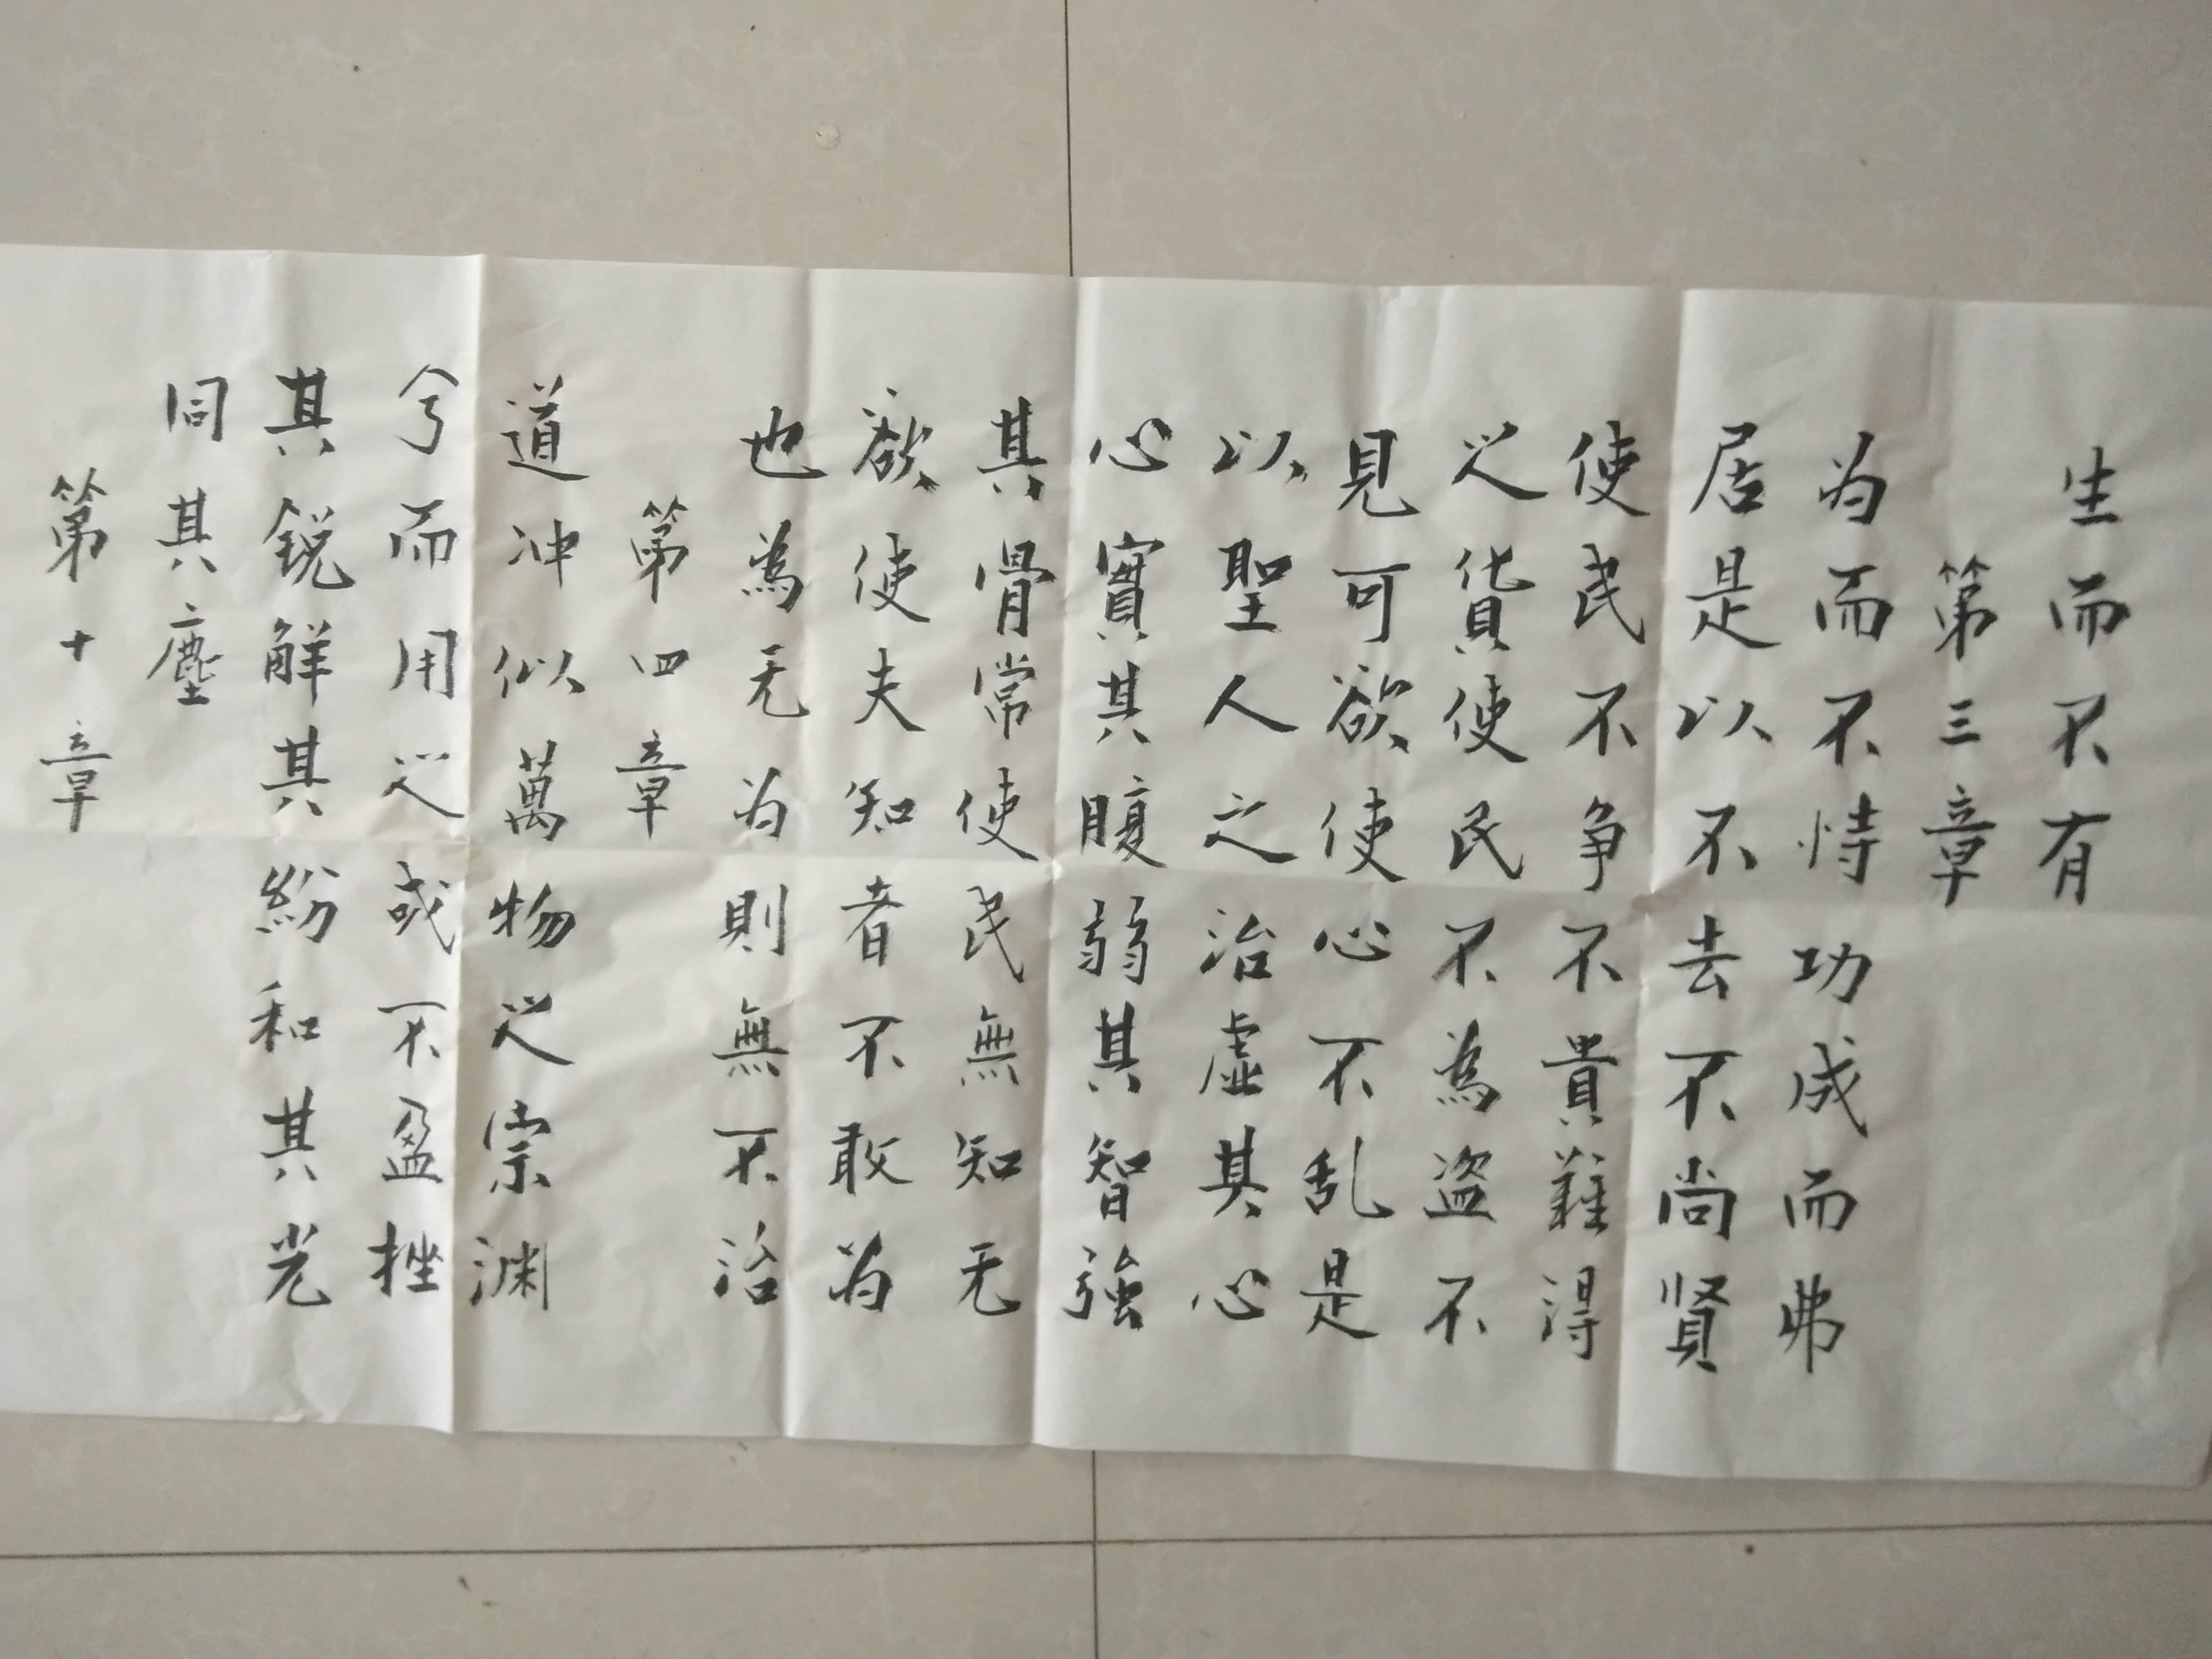 生而不有
第三章
为而不恃功成而弗
居是以不去不尚贤
使民不争不貴難得
之货使民不為盗不
見可欲使心不乱是
以聖人之治虚其心
心實其腹弱其智強
其骨常使民無知无
欲使夫知者不敢为
也為无为則無不治
第四章
道冲似萬物之宗渊
兮而用之或不盈挫
其锐解其紛和其光
同其塵
第十章